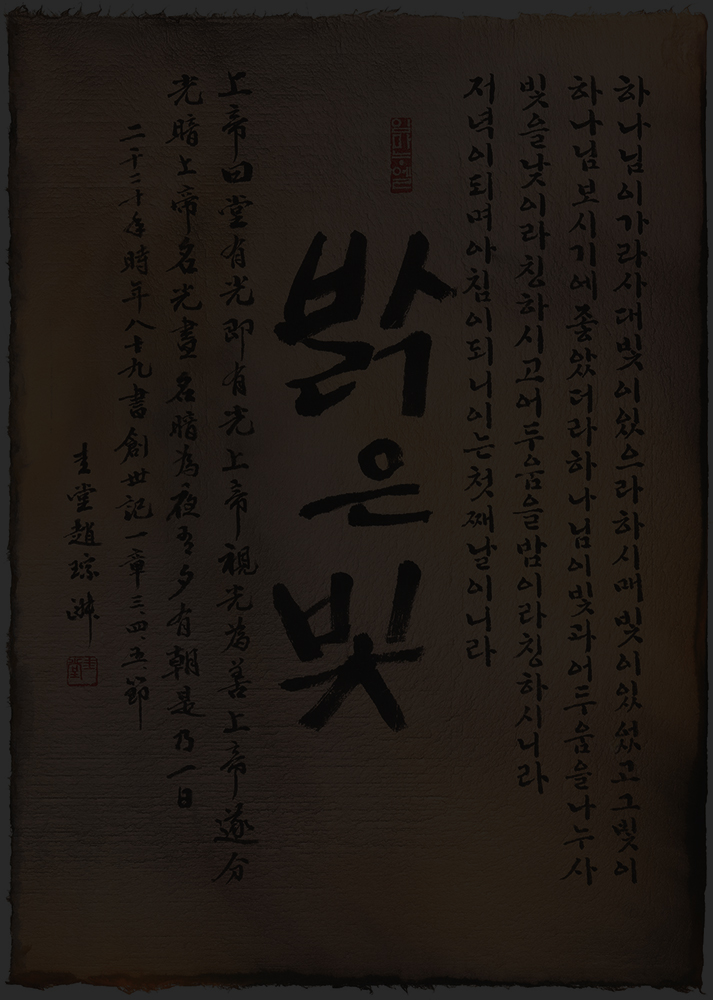 하나님이가라사대빛이있으라하시매빛이있었고그빛이
하나님보시기에좋았더라하나님이빛과어두움을나누사
빛을낮이라칭하시고어두움을밤이라칭하시니라
저녁이되며아침이되니이는첫째날이니라
임마누엘
밝은빛
上帝曰堂有光即有光上帝視光為善上帝遂分
光暗上帝名光晝名暗為夜有夕有朝是乃一日
二千二十年時年八十九書創世記一章三.四.五.節
圭堂趙琮淋